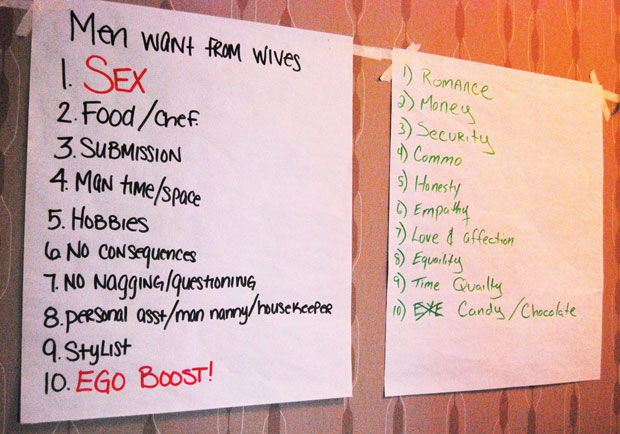 Men want from wives
1. SEX
2. Food/chef
3. Submission
4. Man time/space
5. Hobbies
6. No consequences
7. No Nagging/questioning
8. personal asst/man nanny/housekeeper
9. Stylist
10. EGO BOOST!
1) Romance
2) Money
3) Security
4) Commo
5) Honesty
6) Empathy
7) Love & affection
8) Equaility
9) Time Quailty
10) Candy/Chocolate